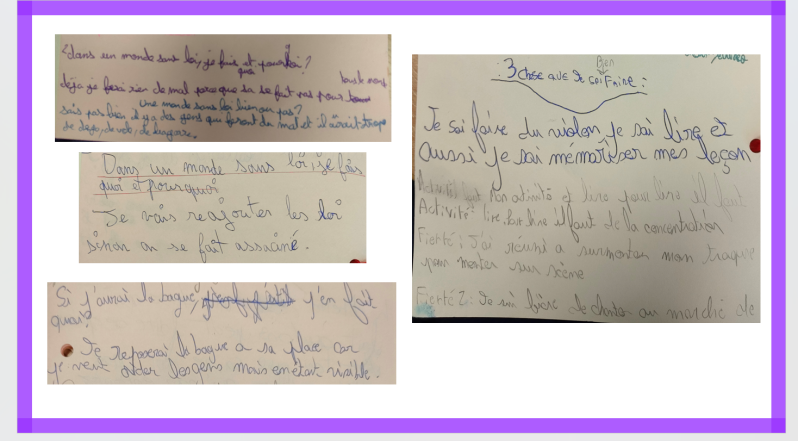 dans un monde sans loi, je fais et pourquoi?
quoi
tout le monde
déja je ferai rien de mal parce que sa se fait pas pour
une monde sans loi bien ou pas?
sais pas bien il y a des gens qui feront du mal et il aurait trop
de dego, de vol, de bagare.
Dans un monde sans loi, je fais
quoi et pourquoi
Je vais reajouter les loi
sinon on se fait assasiné.
Si j'aurai la bague, j'en fait
quoi?
Je reposerai la bague a sa place car
je veut aider les gens mais en étant visible.
bien
: 3 chose que je sai Faire :
Je sai faire du violon, je sai lire et
aussi je sai mémoriser mes leçon
Activité mon activité et lire pour lire il faut
Activité : lire, pour lire il faut de la concentration
Fierté : J'ai réussi a surmonter mon traque
pour monter sur scène
Fierté 2 : Je suis fière de chanter au marché de